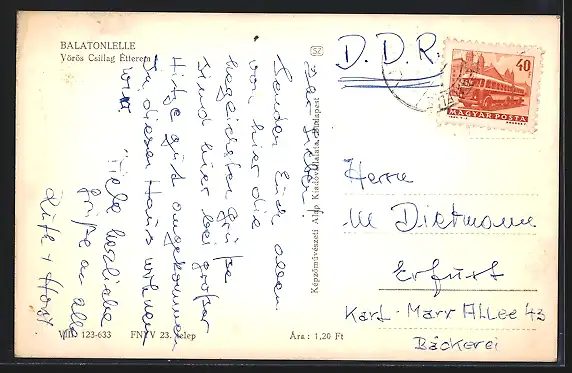 BALATONLELLE
Vörös Csillag Étterem
Ihr Lieben!
Senden Euch allen
von hier die
herzlichsten Grüße
Sind hier bei großer
Hitze gut angekommen
In diesem Haus wohnen
wir.
Viele herzliche
Grüße an alle
Ruth + Horst
VIII. 123-633
FNYV 23. telep
Ára : 1,20 Ft
Képzőművészeti Alap Kiadóvállalata, Budapest
SZ
D. D. R.
40 f
MAGYAR POSTA
Herrn
M Dietmann
Erfurt
Karl-Marx Allee 43
Bäckerei